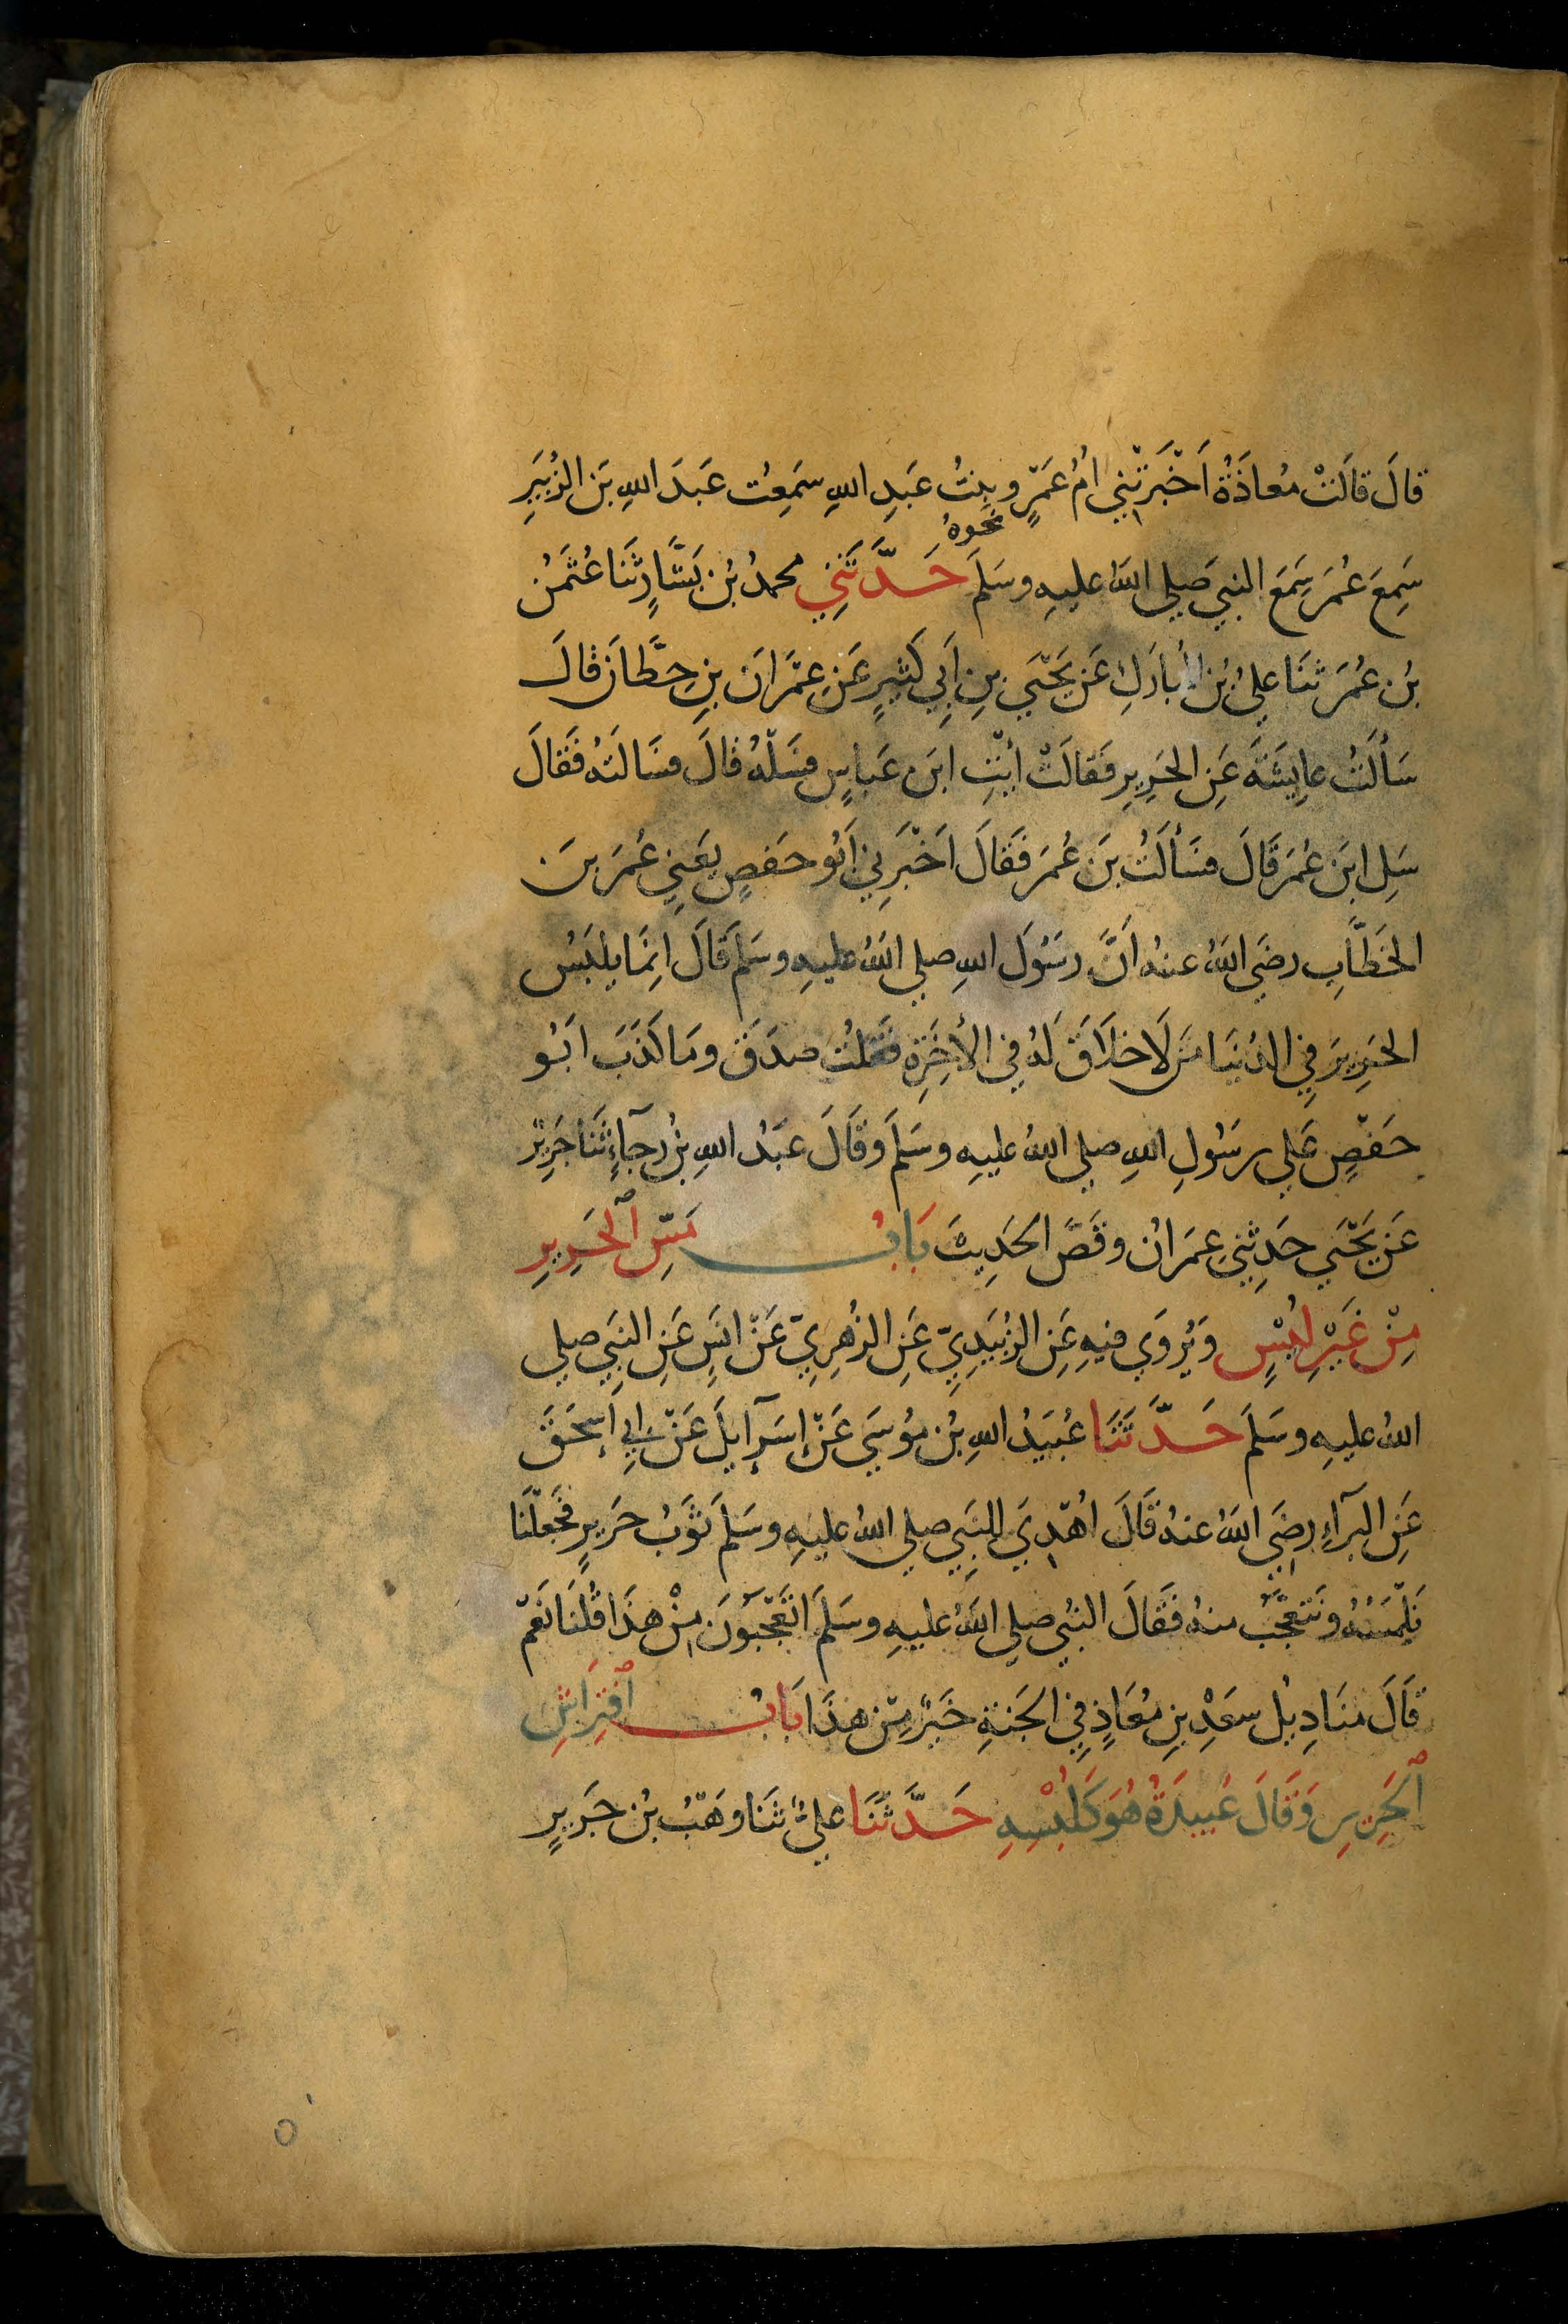 قَالَ قَالَتْ مُعاذَةُ اَخْبَرَتْنِي اُمُ عَمْرٍو بِنتُ عَبدِ اللهِ سَمِعْت عَبدَ اللهِ بنَ الزُبَيرِ
نحوهُ
سَمِعَ عُمَرَ سَمِعَ النبيَ صَلي اللهُ عليهِ وسَلمَ حَدَّثَنِي محمدُ بنُ بَشَّارٍ ثَنَا عُثمَنُ
بنُ عُمَرَ ثَنَا عليُ بنُ المُبارَكِ عَن يَحْيَي بنِ اَبِي كَثيرٍ عَن عِمْرَانَ بنِ حِطَّانَ قالَ
سَأَلتُ عايِشَةَ عَنِ الحَرِيرِ فَقالَتْ ائْتِ ابنَ عَباسٍ فسَلْهُ قالَ فسَالتهُ فَقالَ
سَلِ ابنَ عُمَرَ قَالَ فسَأَلتُ بنَ عُمَرَ فَقَالَ اَخْبَرَنِي اَبُو حَفصٍ يعَنِي عُمَرَ بنَ
الخَطَّابِ رضَي اللهُ عنهُ اَنَّ رسَوُلَ اللهِ صلي اللهُ عليهِ وسَلمَ قَالَ اِنمَا يلبَسُ
الحَرِيرَ فِي الدُنيَا مَن لَا خلَاقَ لَهُ فِي الأخِرَةِ فَقلتُ صدَقَ ومَا كَذَبَ ابَوُ
حَفصٍ عَلي رسَوُلِ اللهِ صلي اللهُ عليهِ وسَلمَ وقَالَ عبَدُ اللهِ بنُ رجآءٍ ثَنَا جَرِيرٌ
عَن يَحْيَي حَدثنِي عِمرَانُ وقَصَّ الحَدِيثَ بَابُ مَسِّ ٱلحَرِيرِ
مِنْ غَيْرِ لُبْسٍ وَيُروَي فيهِ عَنِ الزُبَيدِيِّ عَنِ الزُهرِيِّ عَنْ انَسٍ عَنِ النبَيِ صلي
اللهُ عليهِ وسَلمَ حَدَّثَنَا عُبَيدُ اللهِ بنُ موُسَي عَنْ إسرَآيلَ عَنْ ابِي إسحَقَ
عَنِ البَرآءِ رضَي اللهُ عنهُ قَالَ اُهْدِيَ للنبَيِ صلي اللهُ عليهِ وسَلمَ ثوَبُ حَرِيرٍ فجَعَلْنَا
نَلمَسُهُ ونَتعَجَّبُ منهُ فَقَالَ النبَيُ صلي اللهُ عليهِ وسَلمَ اتَعَجَبوُنَ مِنْ هذَا قُلنَا نَعَمْ
قَالَ منَادِيلُ سعَدِ بنِ مُعَاذٍ فِي الجَنةِ خَيرٌ مِن هذَا بَابُ ٱفتِرَاشِ
ٱلحَرِيرِ وَقَالَ عُبيدَةُ هُوَ كَلُبْسِهِ حَدَّثَنَا عليٌ ثنَا وهَبُ بنُ جرَيرٍ